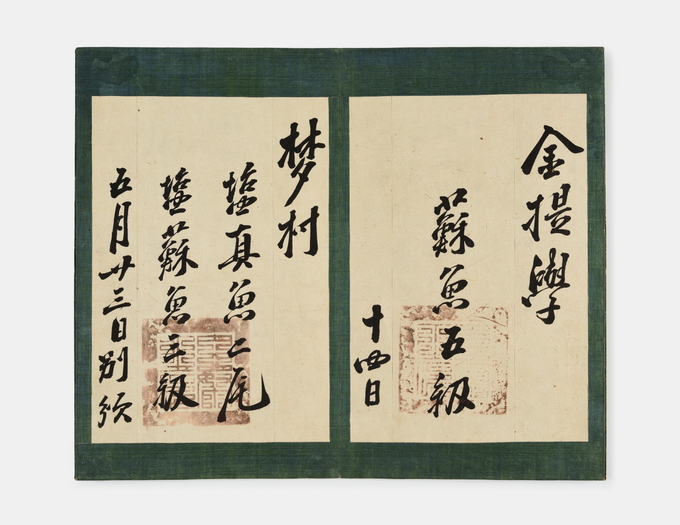 金提學
蘇魚五級
十四日
梦村
塩真魚二尾
塩蘇魚三級
五月廿三日別頒